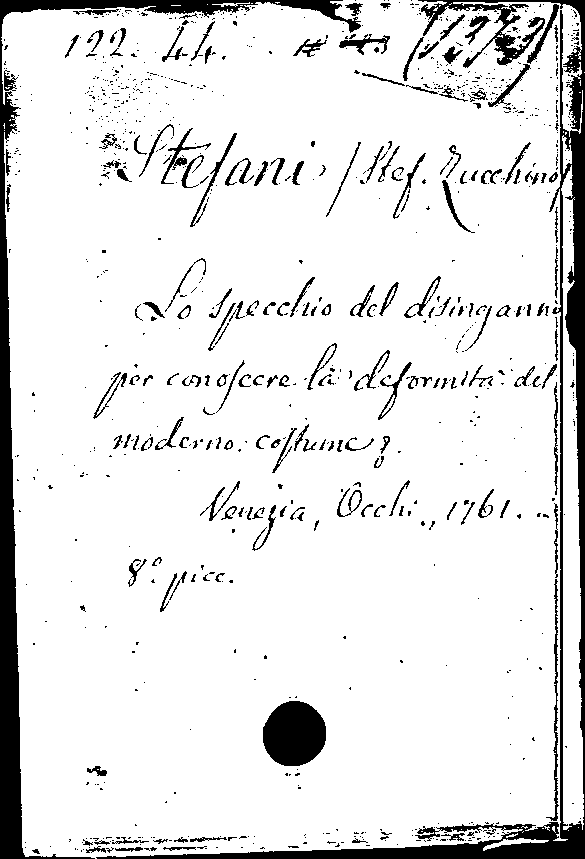 122. 44. (1373)
Stefani, /Stef. Zucchino/
Lo specchio del disinganno
per conoscere la deformità del
moderno costume.
Venezia, Occhi, 1761.
8º picc.